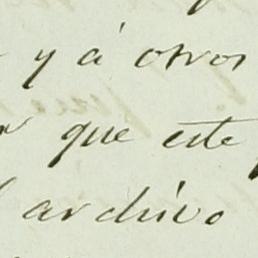 y á otros
que este
archivo